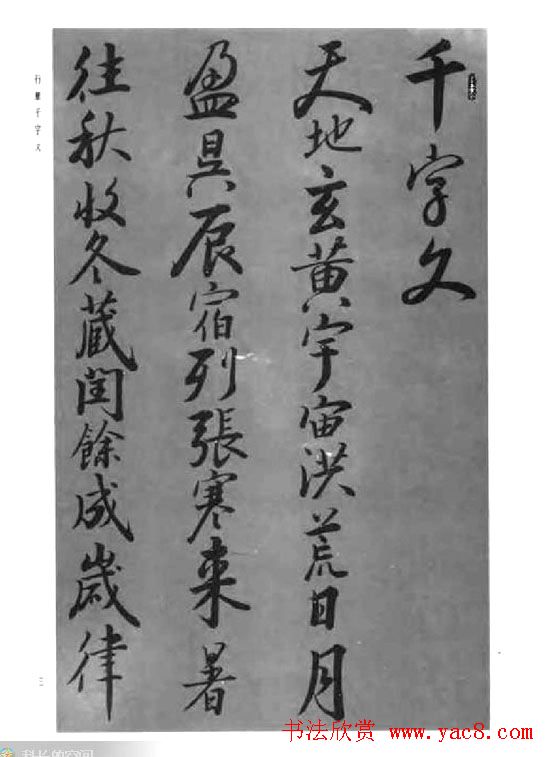 千字文
天地玄黄宇宙洪荒日月
盈昃辰宿列張寒来暑
往秋收冬蔵閏餘成歳律
行書千字文
三
书法欣赏 www.yac8.com
科长的空间